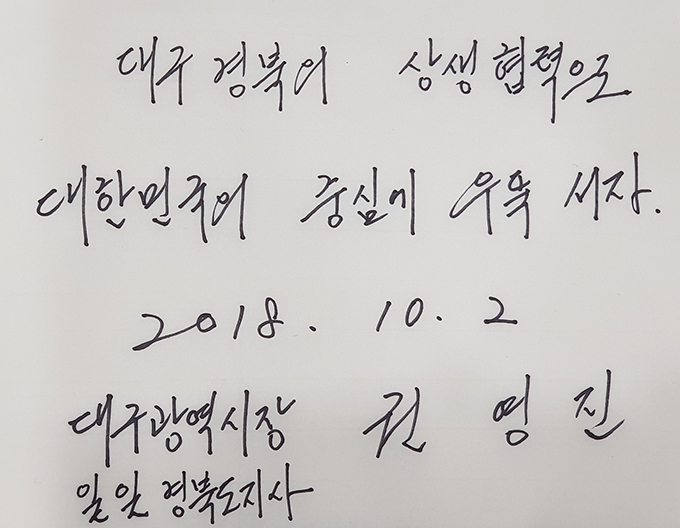 대구 경북의 상생 협력으로
대한민국의 중심에 우뚝 서자.
2018. 10. 2
대구광역시장 권 영 진
일일 경북도지사